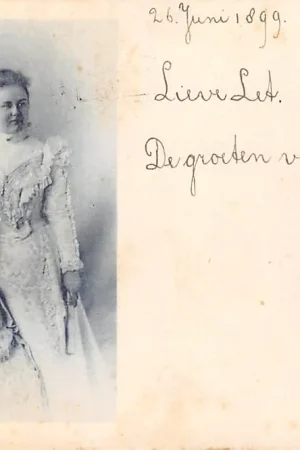 26. Juni 1899.
Lieve Let.
De groeten v